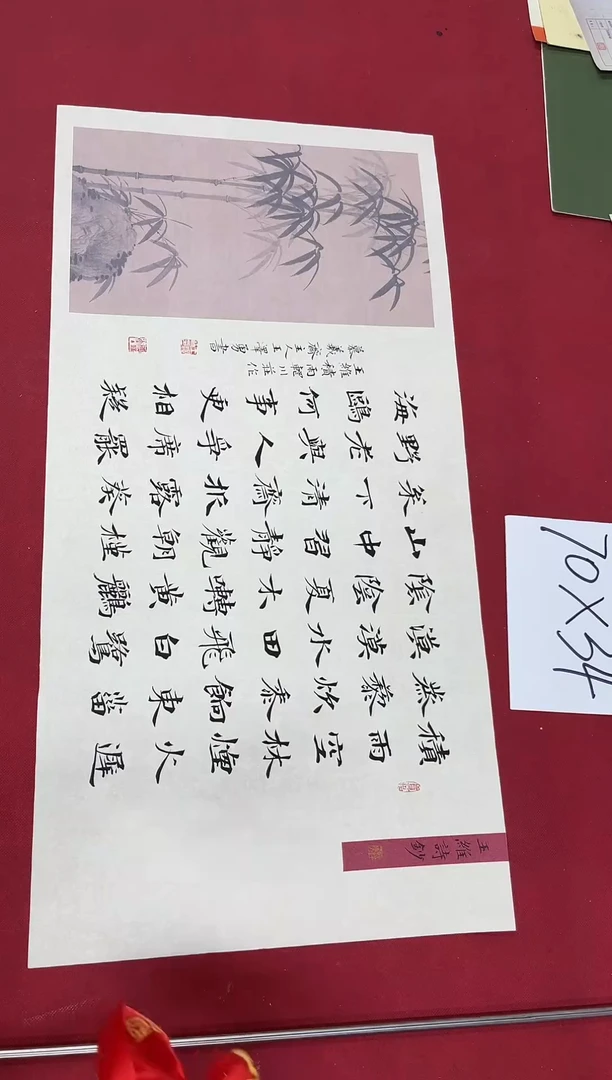 王維詩鈔
積雨空林煙火遲
蒸黎炊黍餉東菑
漠漠水田飛白鷺
陰陰夏木囀黃鸝
山中習靜觀朝槿
枀下清齋折露葵
野老與人爭席罷
海鷗何事更相疑
王維積雨輞川莊作
慕羲齋主人王澤勇書
70X34